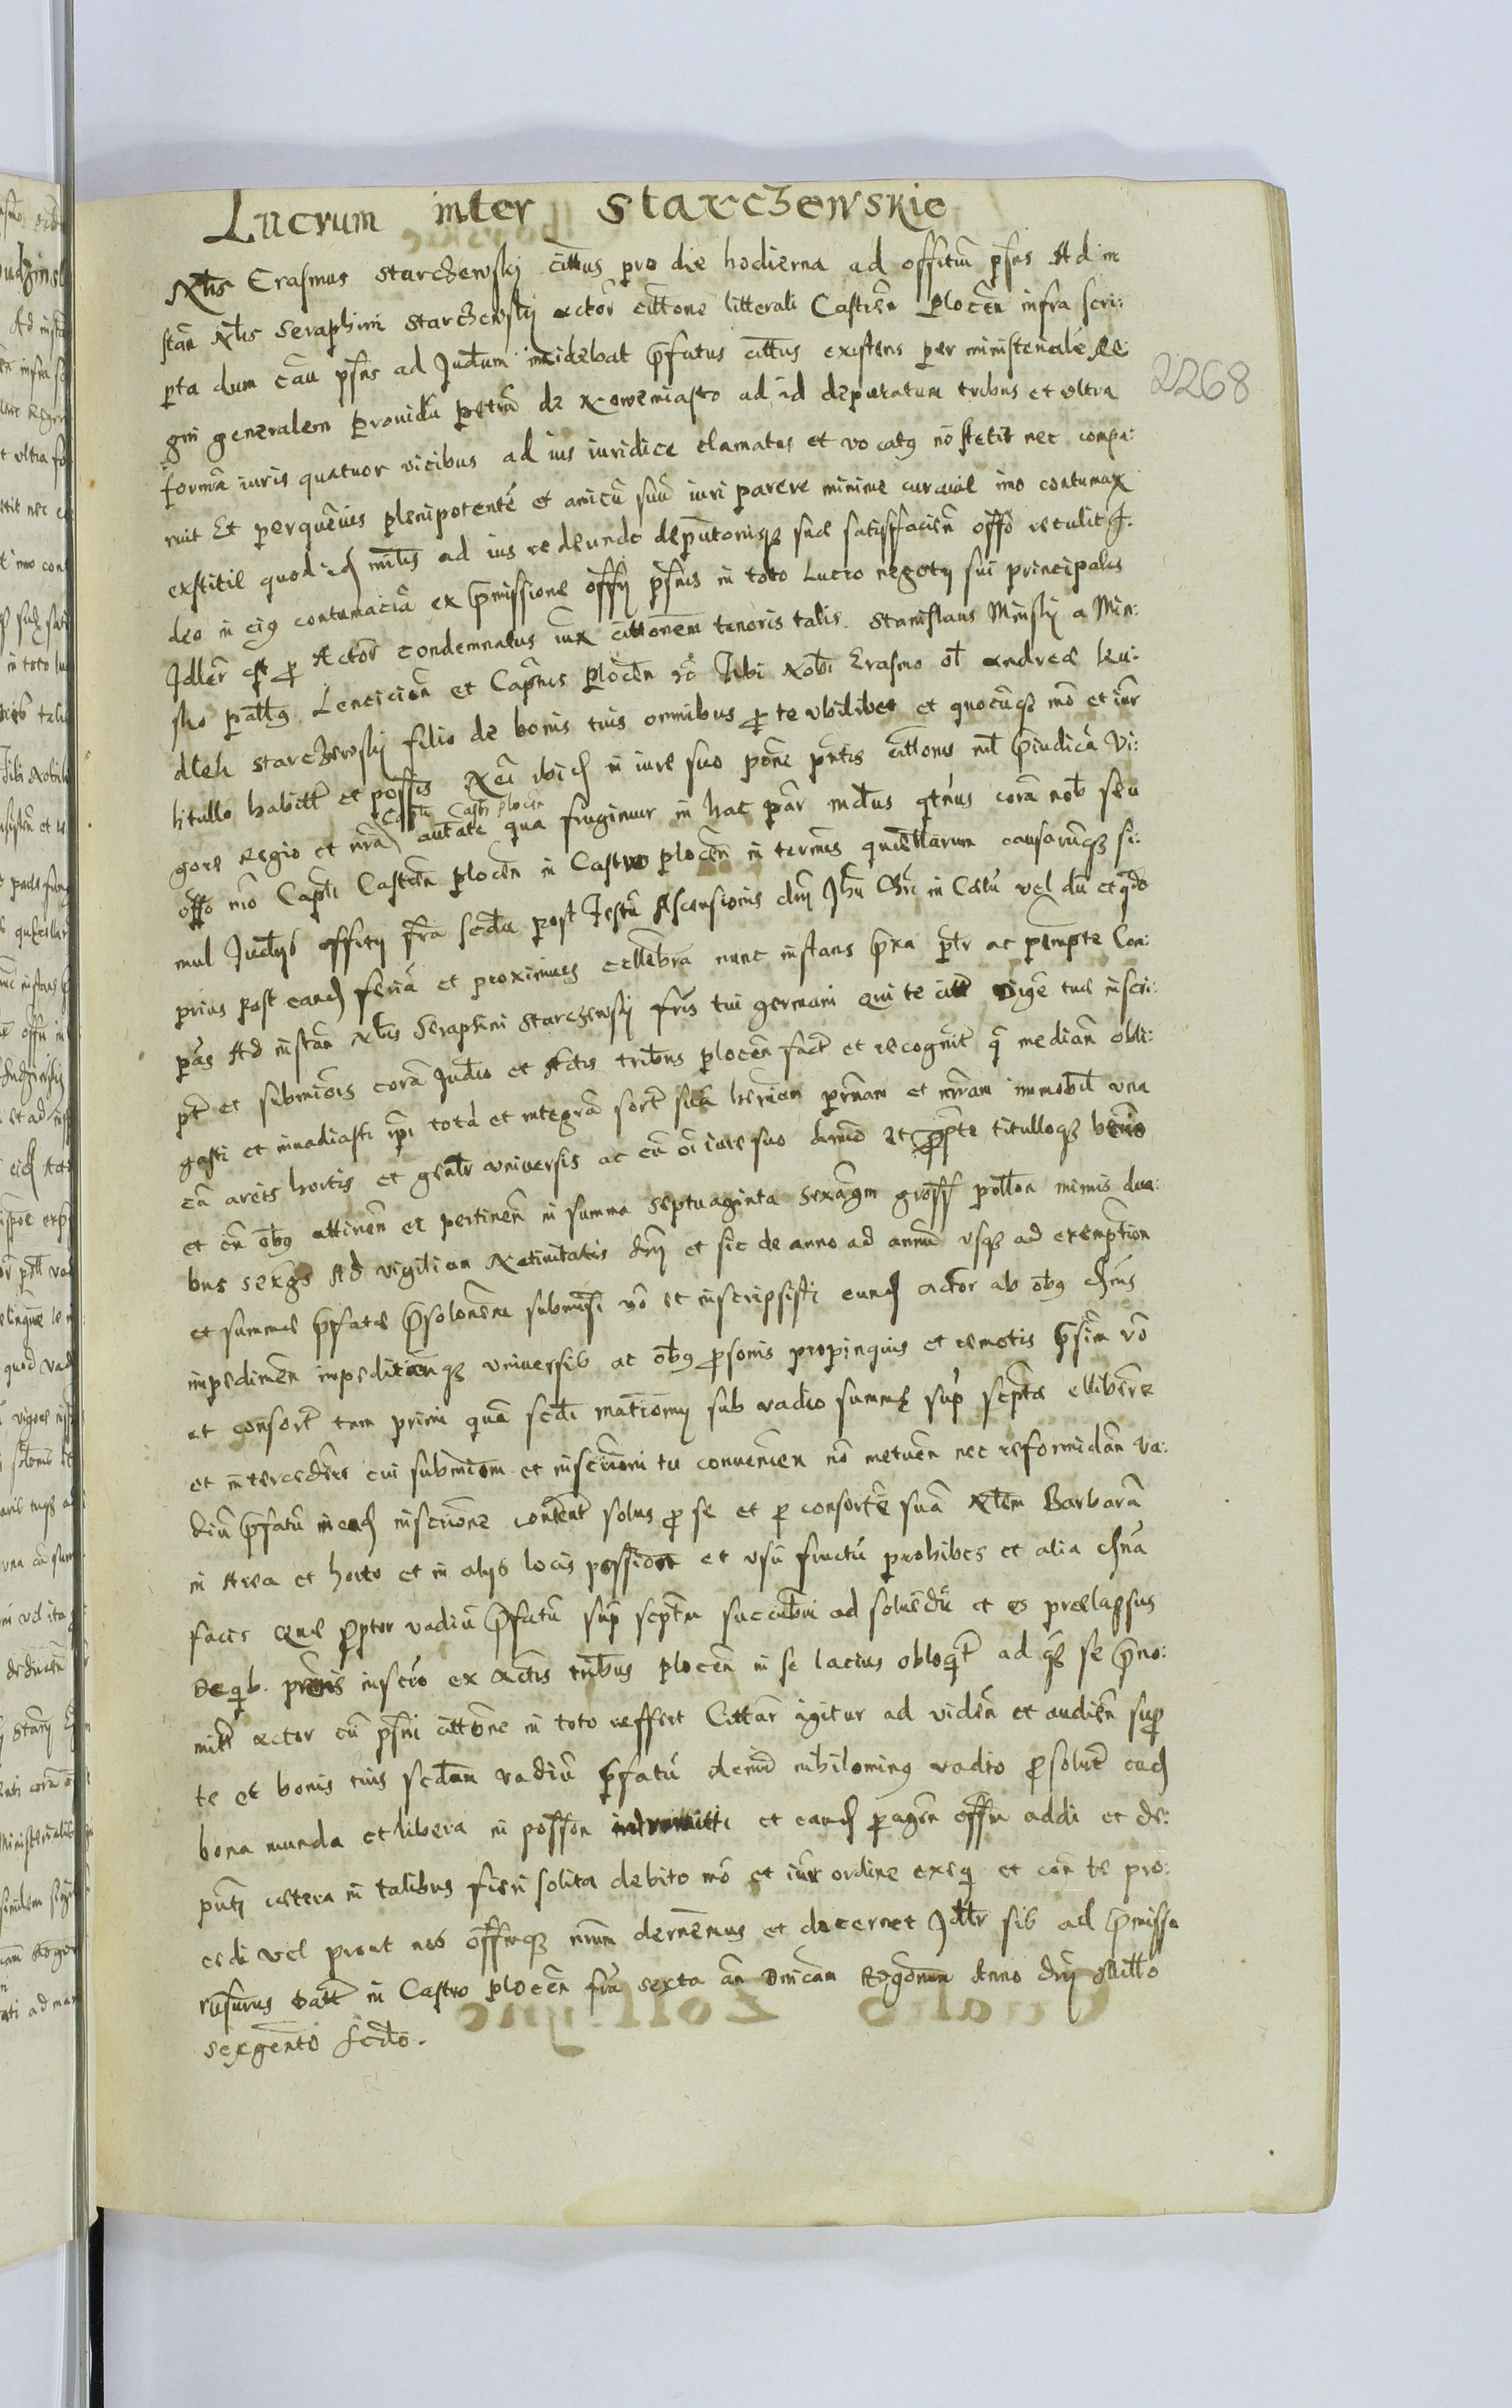 Lucrum inter Starczewskie
Nblis Erasmus Starczewskj cittus pro die hodierna ad offitiu pns Ad in
stan Nblis Seraphini Starczewskj actor cittone litterali Castren Plocen infra scri:
pta dum cau pns ad Judtum incidebat pfatus cittus existens per ministeriale Re:
gni generalem prouidu petru de Nowemiasto ad id deputatum tribus et vltra
forma iuris quatuor vicibus ad ius iuridice clamatus et vocatus no stetit nec compa:
ruit Et per queuis plenipotente et amicu suu iuri parere minime curauit imo contumax
exstitit quod idem mnlis ad ius redeundo deputtonisq sue satisffacien offo retulit I:
deo in eius contumacia ex pmissione offy pntis in toto Lucro negoty sui principalis
Idler est p Actor condemnatus iux cittonem tenoris talis. Stanislaus Minskj a Min:
sko pallus Lencicien et Capneus plocen ro Tibi Nobi Erasmo ol Andree ku:
dleh Starczewskj filio de bonis tuis omnibus p te vbilibet et quocuq mo et iur
titullo habitt et possis
gore regio et nra Capti Castr plocen autate qua frugimur in hac par mdtus qtnus cora nob seu
offo nro Capti Castren plocen in Castro plocen in termis querellarum causaruq si:
mul Judtys offity fria secda post Festu Ascensionis dni Jhu Chri in Celu vel du et qdo
prius post eand feria et proximius cellebra nunc instans pxa ptr ac pempte Con:
pas Ad instan Nblis Seraphini Starczewskj fris tui germani qui te citt vige tue inscri:
pt et submiois cora Judio et Actis tribus plocen fact et recognit q median obli:
gasti et inuadiasti ipi tota et integra sort sua herian pernam et mram immobil vna
cu areis hortis et gnalr vniuersis ac cu oi iure suo dnio et ppte titulloq
et cu obus attinen et pertinen in summa septuaginta sexagm gross pollon minis dua:
bus sexgs Ad vigiliam Natiuitatis dni et sic de anno ad annu vsq ad exemption
et summe pfate psolonem submisi ro et inscripsisti eund actor ab obus
impedimen impeditionq vniuersis ac obus psonis propinquis et remotis psim ro
at consort tam primi qua scdi matriomy sub vadio summe sup scpte ellibere
et intercedere cui submioni et inscrioni tu conuenien no metuen nec reformidan va:
diu pfatu in ead inscrione content solus p se et p consorte sua Nblem Barbara
in Area et horto et in alys locis possidet et vsu fructu prohibes et alia
facis que ppter vadiu pfatu sup scptm succubui ad soluedu et es prelapsus
De qb. pmis inscro ex Actis tribus plocen in se lacius obloqt ad qs se pno:
mit Actor cu pnti cittone in toto reffert Cittar igitur ad viden et audien sup
te et bonis tuis scdam vadiu pfatu demu nihilominus vadio psolut ead
bona munda et libera in posson intromitti et eand pagen offm addi et de:
puti cetera in talibus fieri solita debito mo et iur ordine exeq et con te pro:
cedi vel prout nos offmq nrum dernemus et decernet Jdlr sib ad pmissa
rnsurus Datt in Castro plocen fria sexta an Dnicam Rogonum Anno dni Millo
sexgento scdo.
2268